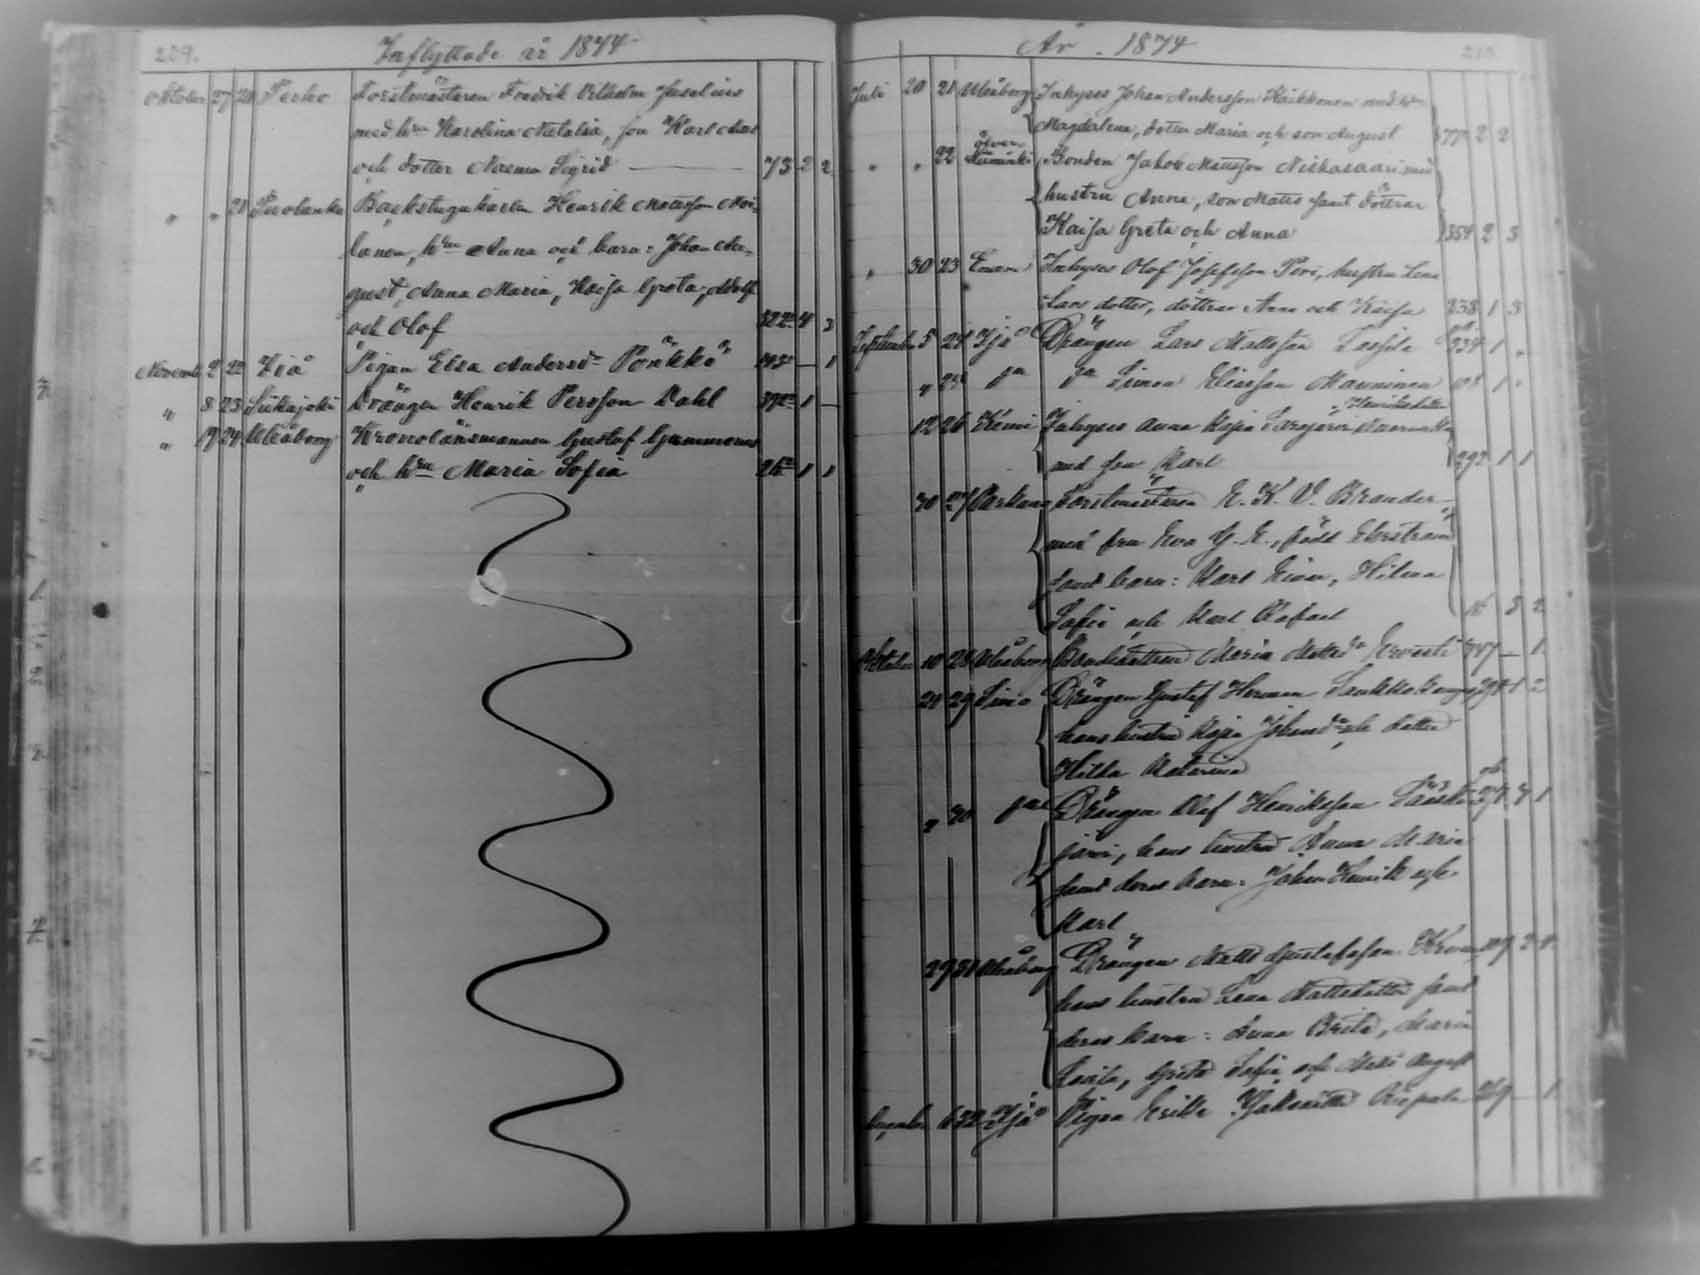 209.
Inflyttade år 1874
Oktober 27 20 Perho Forstmästaren Fredrik Vilhelm Juselius
med hu Karolina Natalia, son Karl Max
och dotter Naema Sigrid 73 2 2
" " 21 Puolanka Backstugukarln Henrik Mattsson Moi-
lanen, hu Anna och barn: Johan Au-
gust, Anna Maria, Kaisa Greta, Adolf
och Olof 322 4 3
November 2 22 Ijå Pigan Elsa Andersdr Pönkkö — 1
" 8 23 Siikajoki Drängen Henrik Persson Dahl 1 —
" 19 24 Uleåborg Kronolänsmannen Gustaf Gummerus
och hu Maria Sofia 1 1
År 1874
210.
Juli 20 21 Uleåborg Inhyses Johan Andersson Kaikkonen med hu
Magdalena, dotter Maria och son August 777 2 2
" " 22 Kiiminki Bonden Jakob Mattsson Niskasaari med
hustru Anna, son Matts samt döttrar
Kaisa Greta och Anna 354 2 3
" 30 23 Inhyses Olof Josefsson hustru Lena
Lars dotter, döttrar Anna och Kaisa 238 1 3
September 5 24 Ijå Drängen Lars Mattsson 234 1 "
" 25 Simon Eliasson Manninen 1 "
12 26 Kemi Inhyses Anna Kajsa Henriksdotter
med son Karl 292 1 1
30 27 Parkano Forstmästaren E. K. V. Brander
med fru Eva G. E., född Ekström
samt barn: Karl Einar, Hilma
Sofia och Karl Rafael 3 2
Oktober 10 28 Uleåborg Bondedottren Maria Mattsdr 747 — 1
21 29 Simo Drängen Gustaf Herman 1 2
hans hustru Kajsa Johansdr och dotter
Hilda Katarina
" 30 Drängen Olof Henriksson
järvi, hans hustru Anna Maria
samt deras barn: Johan Henrik och
Karl
29 31 Uleåborg Drängen Matts Gustafsson
hans hustru Lena Mattsdotter samt
deras barn: Anna Brita, Maria
Lovisa, Greta Sofia och Matts August
December 6 32 Ijå Pigan Riepula 269 — 1